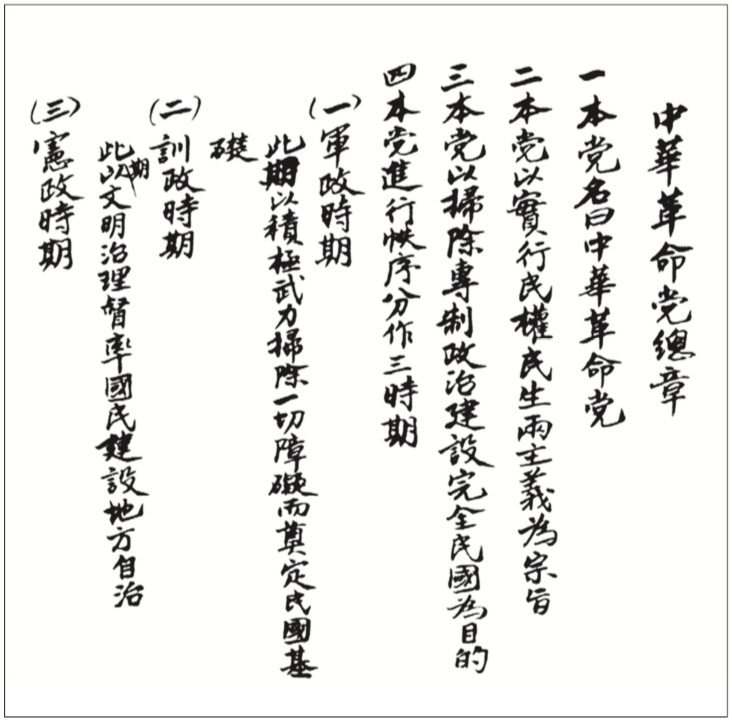 中華革命党總章
一本党名曰中華革命党
二本党以實行民權民生兩主義為宗旨
三本党以掃除專制政治建設完全民國為目的
四本党進行帙序分作三時期
(一)軍政時期
此期以積極武力掃除一切障礙而奠定民國基
礎
(二)訓政時期
此期以文明治理督率國民建設地方自治
(三)憲政時期